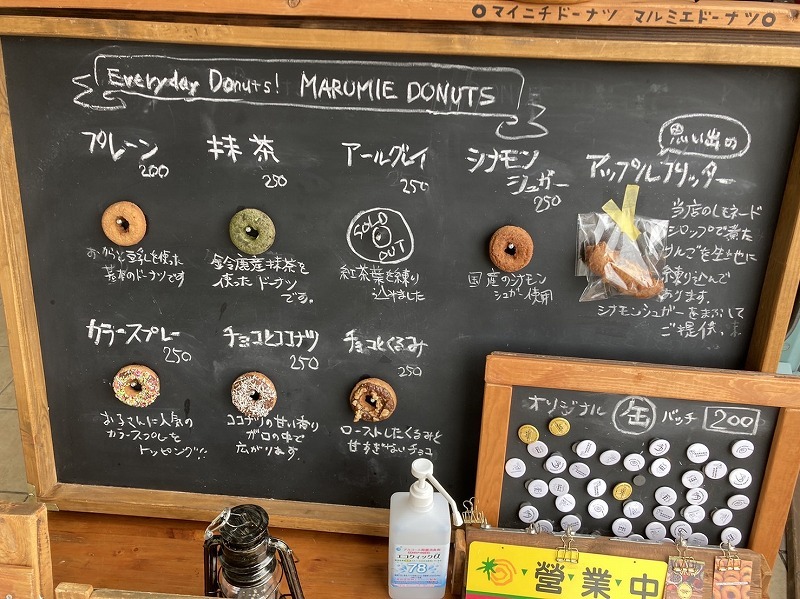 マイニチドーナツ マルミエドーナツ
Everyday Donuts! MARUMIE DONUTS
プレーン
200
おからと豆乳を使った
基本のドーナツです
抹茶
250
鈴鹿産抹茶を
使ったドーナツ
です。
アールグレイ
250
SOLD OUT
紅茶葉を練り
込みました
シナモン
シュガー
250
国産のシナモン
シュガー使用
思い出の
アップルフリッター
当店のレモネード
シロップで煮た
りんごを生地に
練り込んで
あります。
シナモンシュガーをまぶして
ご提供。
カラースプレー
250
お子さんに人気の
カラースプレーを
トッピング!!
チョコとココナツ
250
ココナツの甘い香り
がロの中で
広がります
チョコとくるみ
250
ローストしたくるみと
甘すぎないチョコ
オリジナル 缶 バッチ 200
エコクイックα
78
営業中